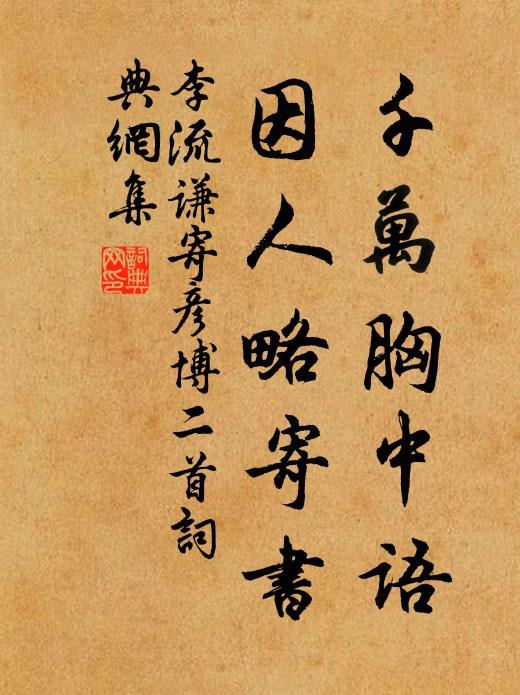 千萬胸中語
因人略寄書
李流謙寄彥博二首詞
典網集
詞典
网印